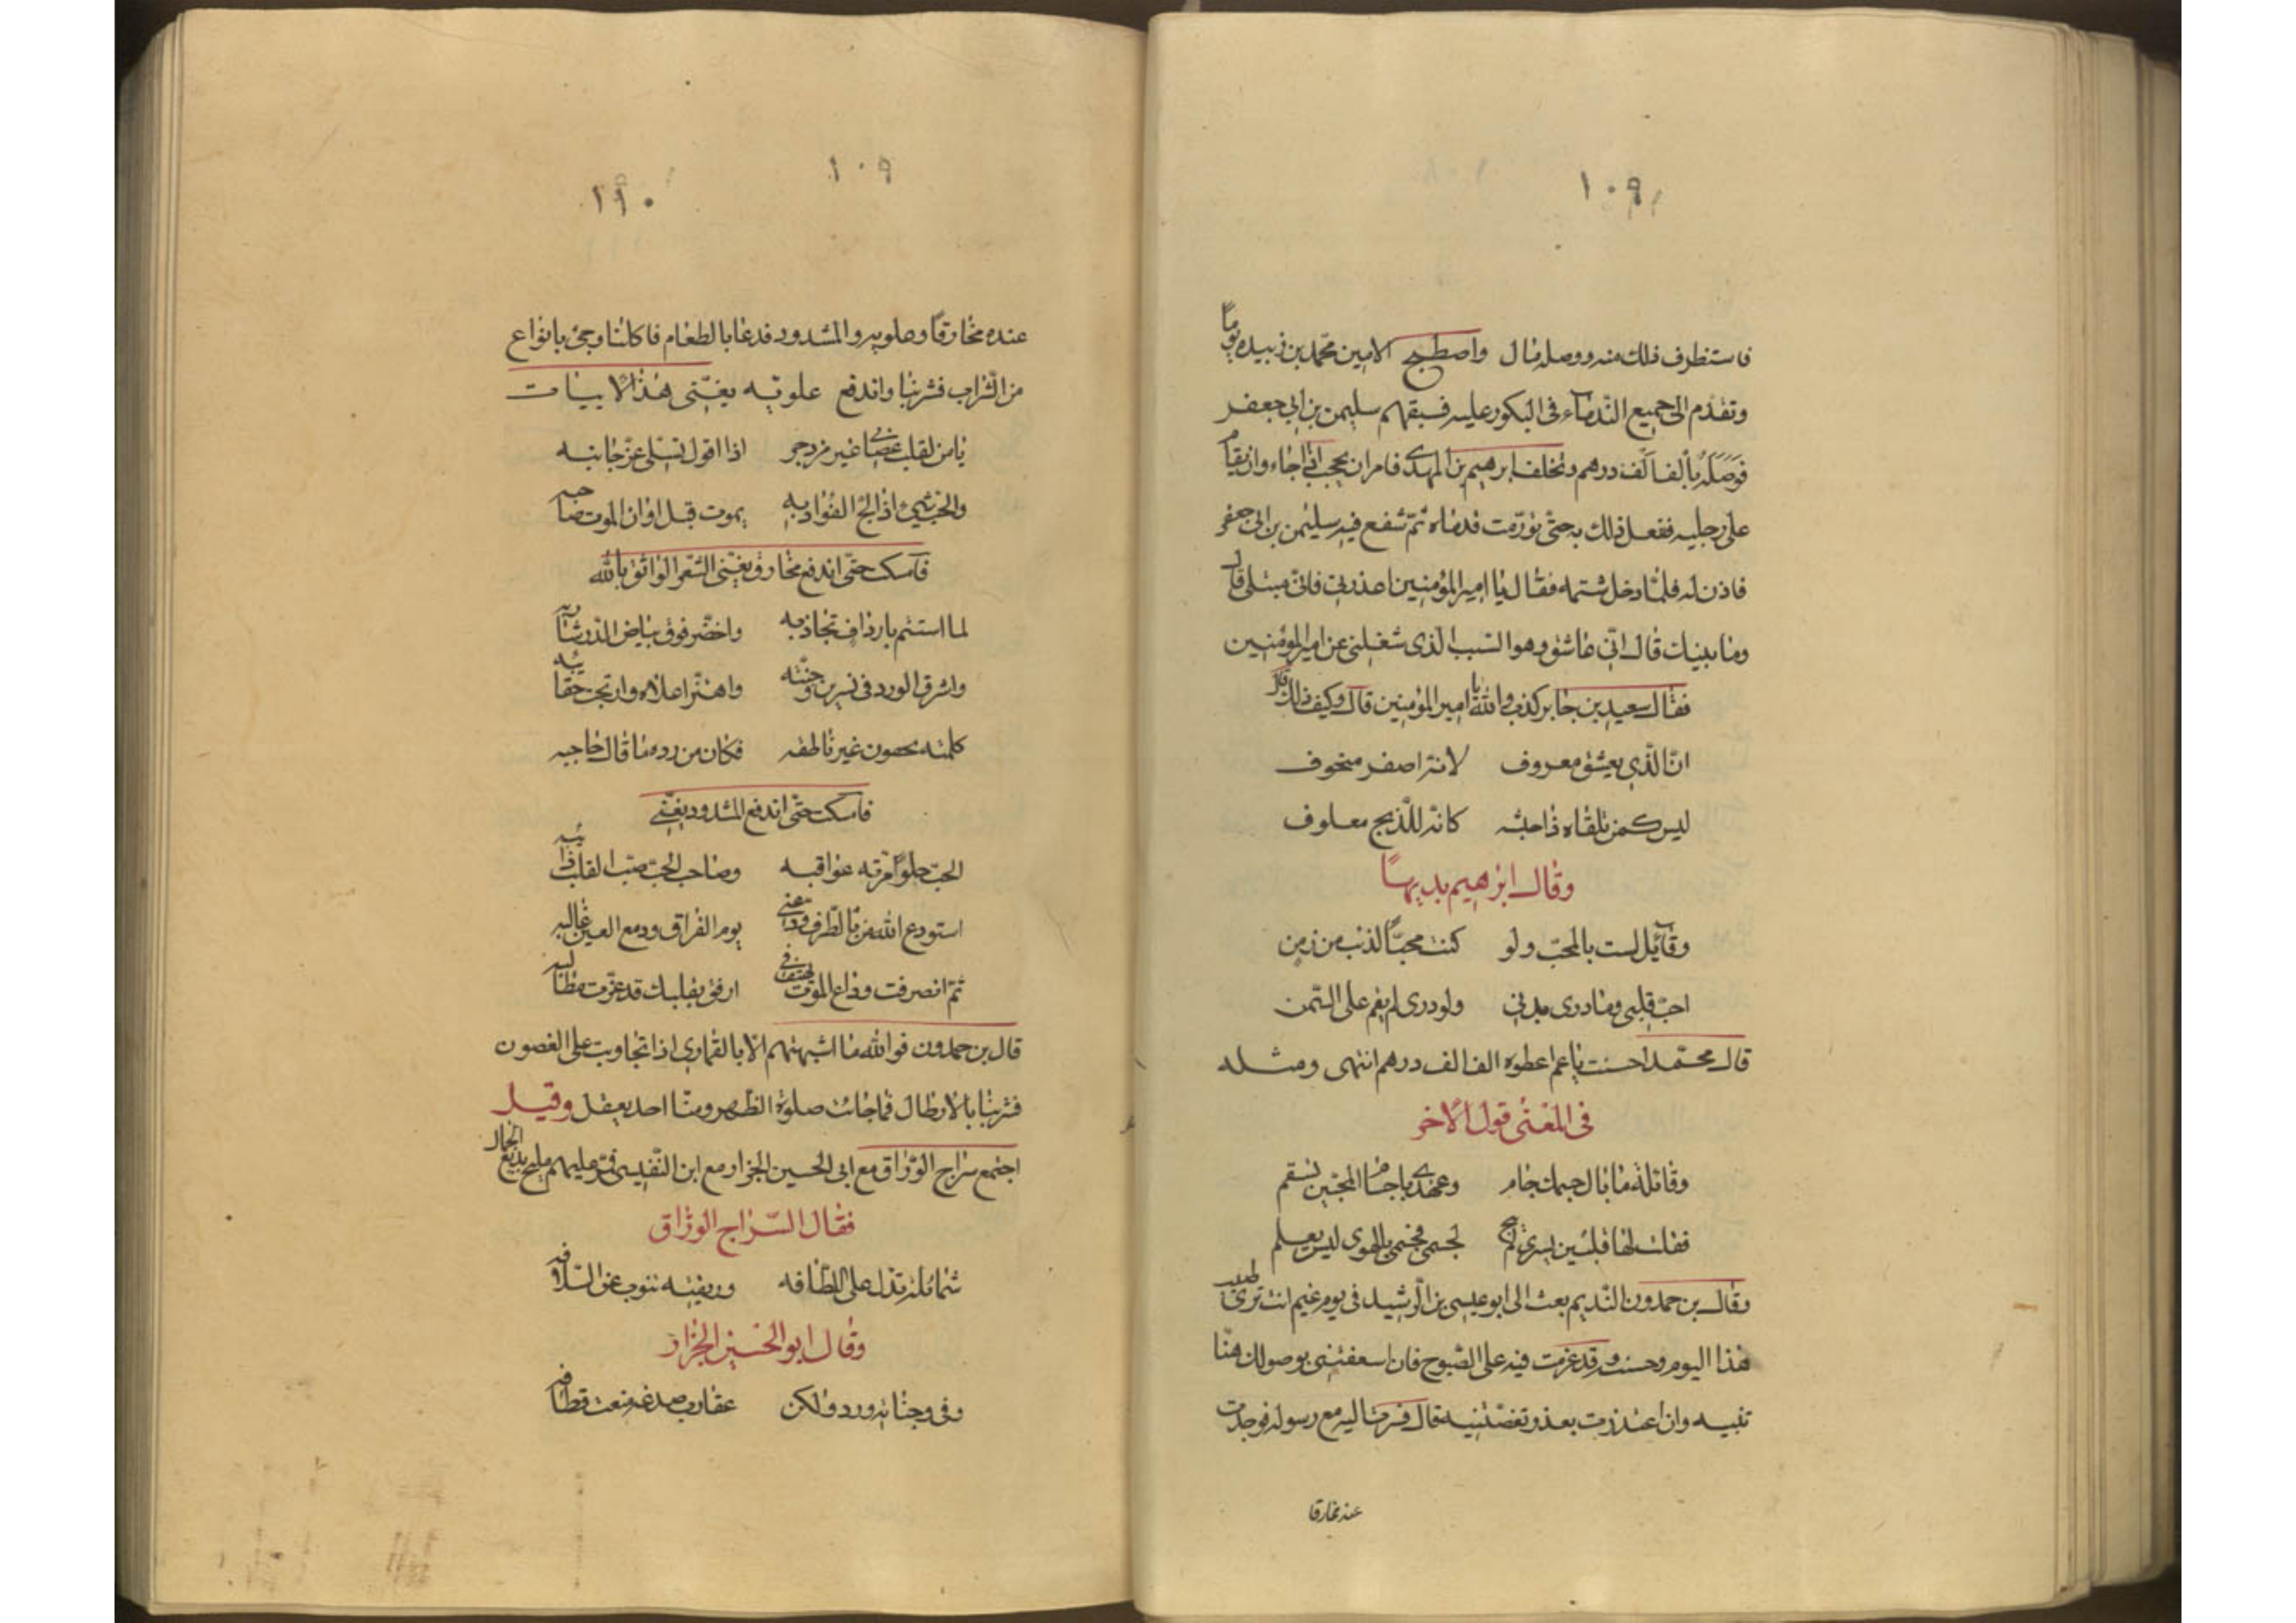 ١٠٩
فاستظرف ذلك منه ووصله قال واصطبح الامين محمد بن زبيده يوماً
وتقدم الى جميع الندماء فى البكور عليه فسبقهم سليمن بن ابى جعفر
فوصله بألف ألف درهم وتخلف ابرهيم بن المهدى فامر ان يحجب اذا جاء وان يقام
على رجليه ففعل ذلك به حتى تورمت قدماه ثم شفع فيه سليمن بن ابى جعفر
فاذن له فلما دخل شتمه فقال يا امير المؤمنين اعذرنى فانى مبتلى قال
وما بليتك قال انى عاشق وهو السبب الذى شغلنى عن امير المؤمنين
فقال سعيد بن جابر كذب والله يا امير المؤمنين قال وكيف ذلك قال
ان الذى يعشق معروف لانه اصفر منحوف
ليس كمن تلقاه ذا جثه كانه للذبح معلوف
وقال ابرهيم بديهاً
وقائل لست بالمحب ولو كنت محباً لذبت من زمن
احب قلبى وما درى بدنى ولو درى لم يقم على السمن
قال محمد احسنت يا عم اعطوه الف الف درهم انتهى ومثله
فى المعنى قول الاخر
وقائلة ما بال جسمك جام وعهدى باجسام المحبين تسقم
فقلت لها قلبى بسرى لم يبح لجسمى فجسمى بالهوى ليس يعلم
وقال بن حمدون النديم بعث الى ابو عيسى بن الرشيد فى يوم غيم انت ترى طيب
هذا اليوم وحسنه وقد عزمت فيه على الصبوح فان اسعفتنى بوصولك هنا
تنبيه وان اعتذرت بعذر تغضنيه قال فسرت اليه مع رسوله فوجدت
عنده مخارقا
١٠٩
١١٠
عنده مخارقاً وعلويه والمشدود فدعا بالطعام فاكلنا وجئ بانواع
من الشراب فشربنا واندفع علويه يغنى هذا الابيات
يا من لقلب عصى غير مزدجر اذا اقول تسلى عز جانبه
والحب شئ اذا لج الفؤاد به يموت قبل اوان الموت صاحبه
فامسك حتى اندفع مخارق يغنى الشعر الواثق بالله
لما استتم بارداف تجاذبه واخضر فوق بياض الدر شاربه
واشرق الورد فى نسرين وجنته واهتز اعلاه وارتجت حقائبه
كلمته بجفون غير ناطقه فكان من رده ما قال حاجبه
فامسك حتى اندفع المشدود يغنى
الحب حلو امرته عواقبه وصاحب الحب صب القلب ذائبه
استودع الله من بالطرف ودعنى يوم الفراق ودمع العين غالبه
ثم انصرفت وداع الموت يهتف فى ارفق بقلبك قد عزت مطالبه
قال بن حمدون فوالله ما اشبهتهم الا بالقمارى اذا تجاوبت على الغصون
فشربنا بالارطال فما جائت صلوة الظهر ومنا احد يعقل وقيل
اجتمع سراج الوراق مع ابى الحسين الجزار مع ابن النفيسى فمر عليهم مليح بديع الجمال
فقال السراج الوراق
شمائله تدل على اللطافه وريقته تنوب عن السلافه
وقال ابو الحسين الجزار
وفى وجناته ورد ولكن عقارب صدغه منعت قطافه